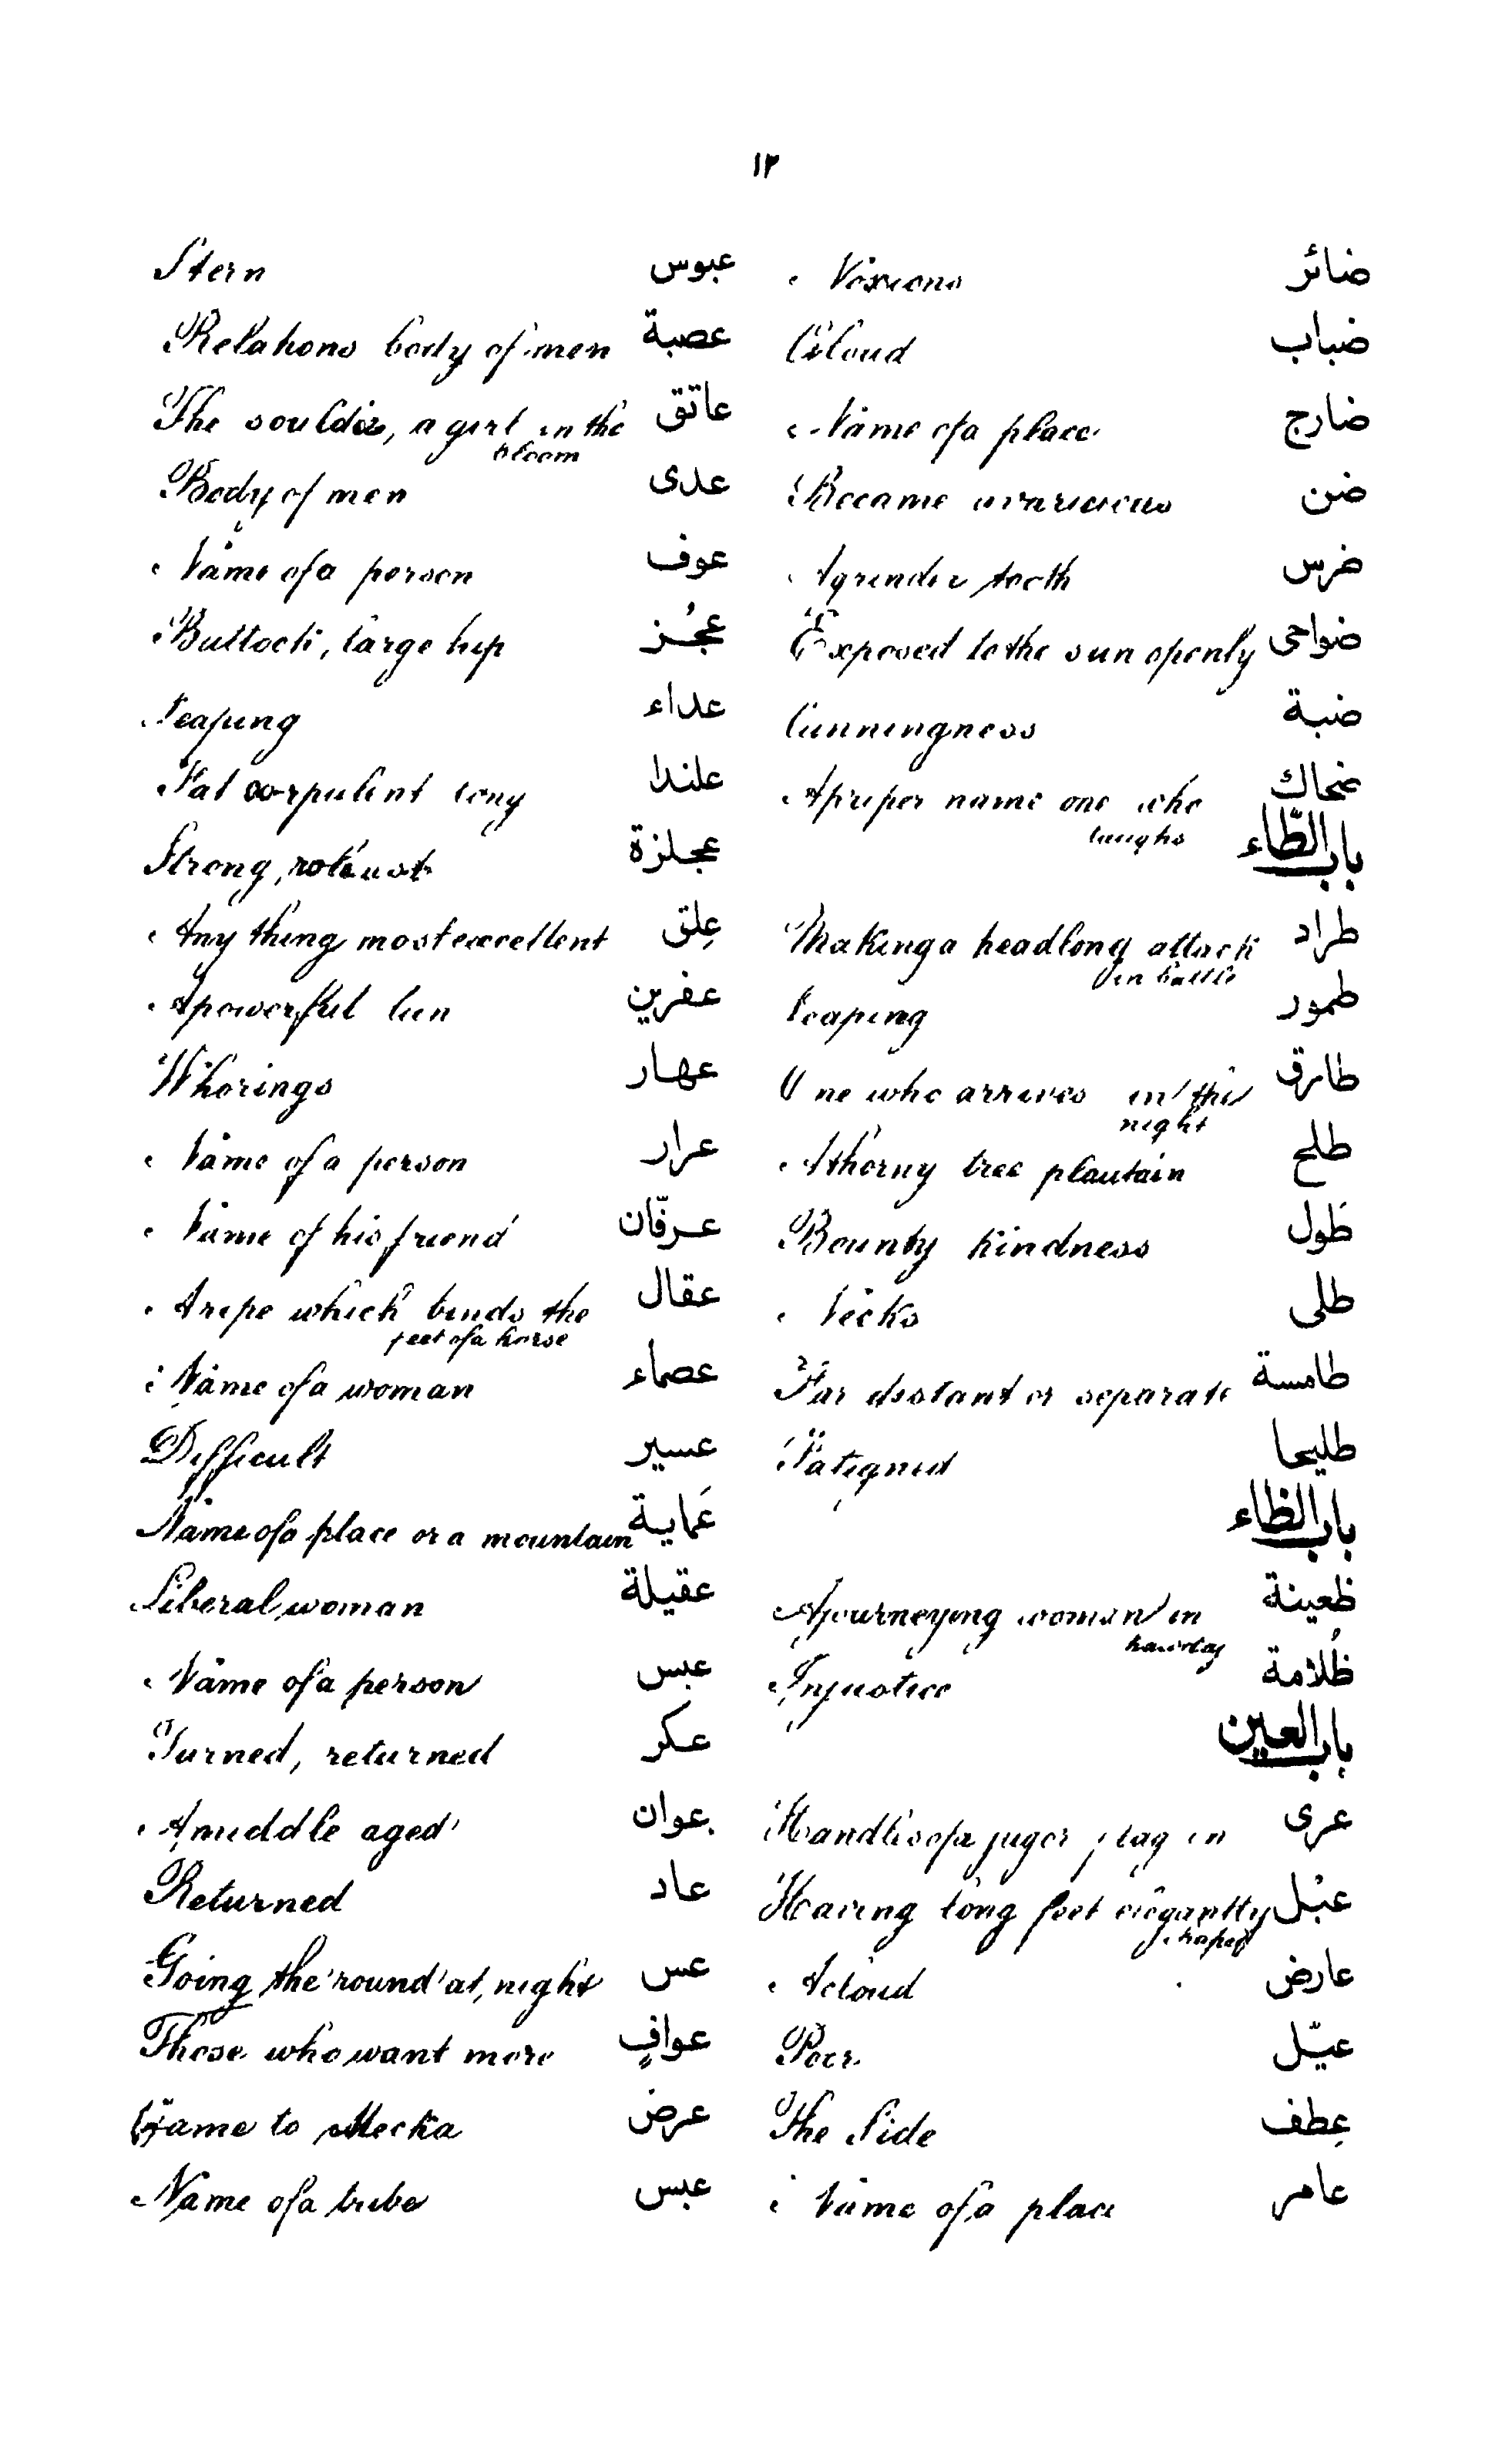 ١٢
ضائر Noxious
ضباب Cloud
ضارج Name of a place
ضن Became avaricious
ضرس A grinder tooth
ضواحى Exposed to the sun openly
ضبة Cunningness
ضحاك A proper name one who
laughs
باب الطّاء
طراد Making a headlong attack
in battle
طمور Leaping
طارق One who arrives in the
night
طلح A thorny tree plautain
طَول Bounty kindness
طلى Necks
طامسة Far distant or separate
طليحا Fatigued
باب الظاء
ظعينة A journeying woman in
hawday
ظُلامة Injustice
باب العين
عرى Handles of a jug or flag in
عبْل Having long feet elegantly
shaped
عارض A cloud
عيّل Poor
عِطف The Side
عامر Name of a place
عبوس Stern
عصبة Relations body of men
عاتق The souldier, a girl in the
bloom
عدى Body of men
عوف Name of a person
عجُز Buttock, large hip
عداء Leaping
علندا Fat corpulent long
عجلزة Strong, robust
عِلق Any thing most excellent
عفرين A powerful lion
عهار Whorings
عرار Name of a person
عرفّان Name of his friend
عقال A rope which binds the
feet of a horse
عصماء Name of a woman
عسير Difficult
عَماية Name of a place or a mountain
عقيلة Liberal woman
عبس Name of a person
عكر Turned, returned
عوان A middle aged
عاد Returned
عس Going the round at night
عوافٍ Those who want more
عرض Came to Mecka
عبس Name of a tribe